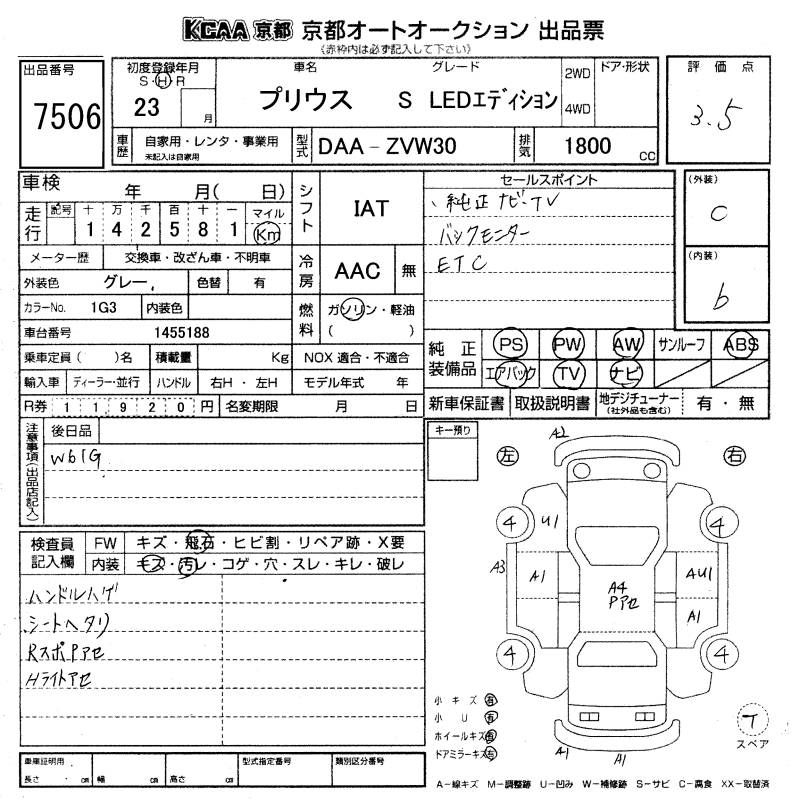 KCAA 京都 京都オートオークション 出品票
《赤枠内は必ず記入して下さい》
出品番号
7506
初度登録年月
S・H・R
23 月
車名 グレード
プリウス S LEDエディション
2WD
4WD
ドア・形状
評価点
3.5
車歴
自家用・レンタ・事業用
未記入は自家用
型式
DAA-ZVW30
排気
1800 CC
車検 年 月( 日)
走行
記号 十 万 千 百 十 一 マイル
1 4 2 5 8 1 Km
メーター歴 交換車・改ざん車・不明車
外装色 グレー, 色替 有
カラーNo. 1G3 内装色
車台番号 1455188
乗車定員( )名 積載量 Kg NOX適合・不適合
輸入車 ディーラー・並行 ハンドル 右H・左H モデル年式 年
R券 1 1 9 2 0 円 名変期限 月 日
シフト
IAT
冷房
AAC 無
燃料
ガソリン・軽油
( )
セールスポイント
純正ナビ・TV
バックモニター
ETC
(外装)
C
(内装)
b
純正装備品
PS PW AW サンルーフ ABS
エアバック TV ナビ
新車保証書 取扱説明書 地デジチューナー
(社外品も含む)
有・無
注意事項(出品店記入)
後日品
W61G
キー預り
左 右
A2
4 4
U1
A3 A1
A4
Pアセ
AU1
A1
4 4
A1 A1
小キズ 有
小U 有
ホイールキズ 有
ドアミラーキズ 有
T
スペア
検査員記入欄
FW キズ・飛石・ヒビ割・リペア跡・X要
内装 キズ・汚レ・コゲ・穴・スレ・キレ・破レ
ハンドルハゲ
シートヘタリ
RスポPアセ
Hライトアセ
車庫証明用
長さ ・ cm 幅 cm 高さ cm
型式指定番号
類別区分番号
A-線キズ M-調整跡 U-凹み W-補修跡 S-サビ C-腐食 XX-取替済